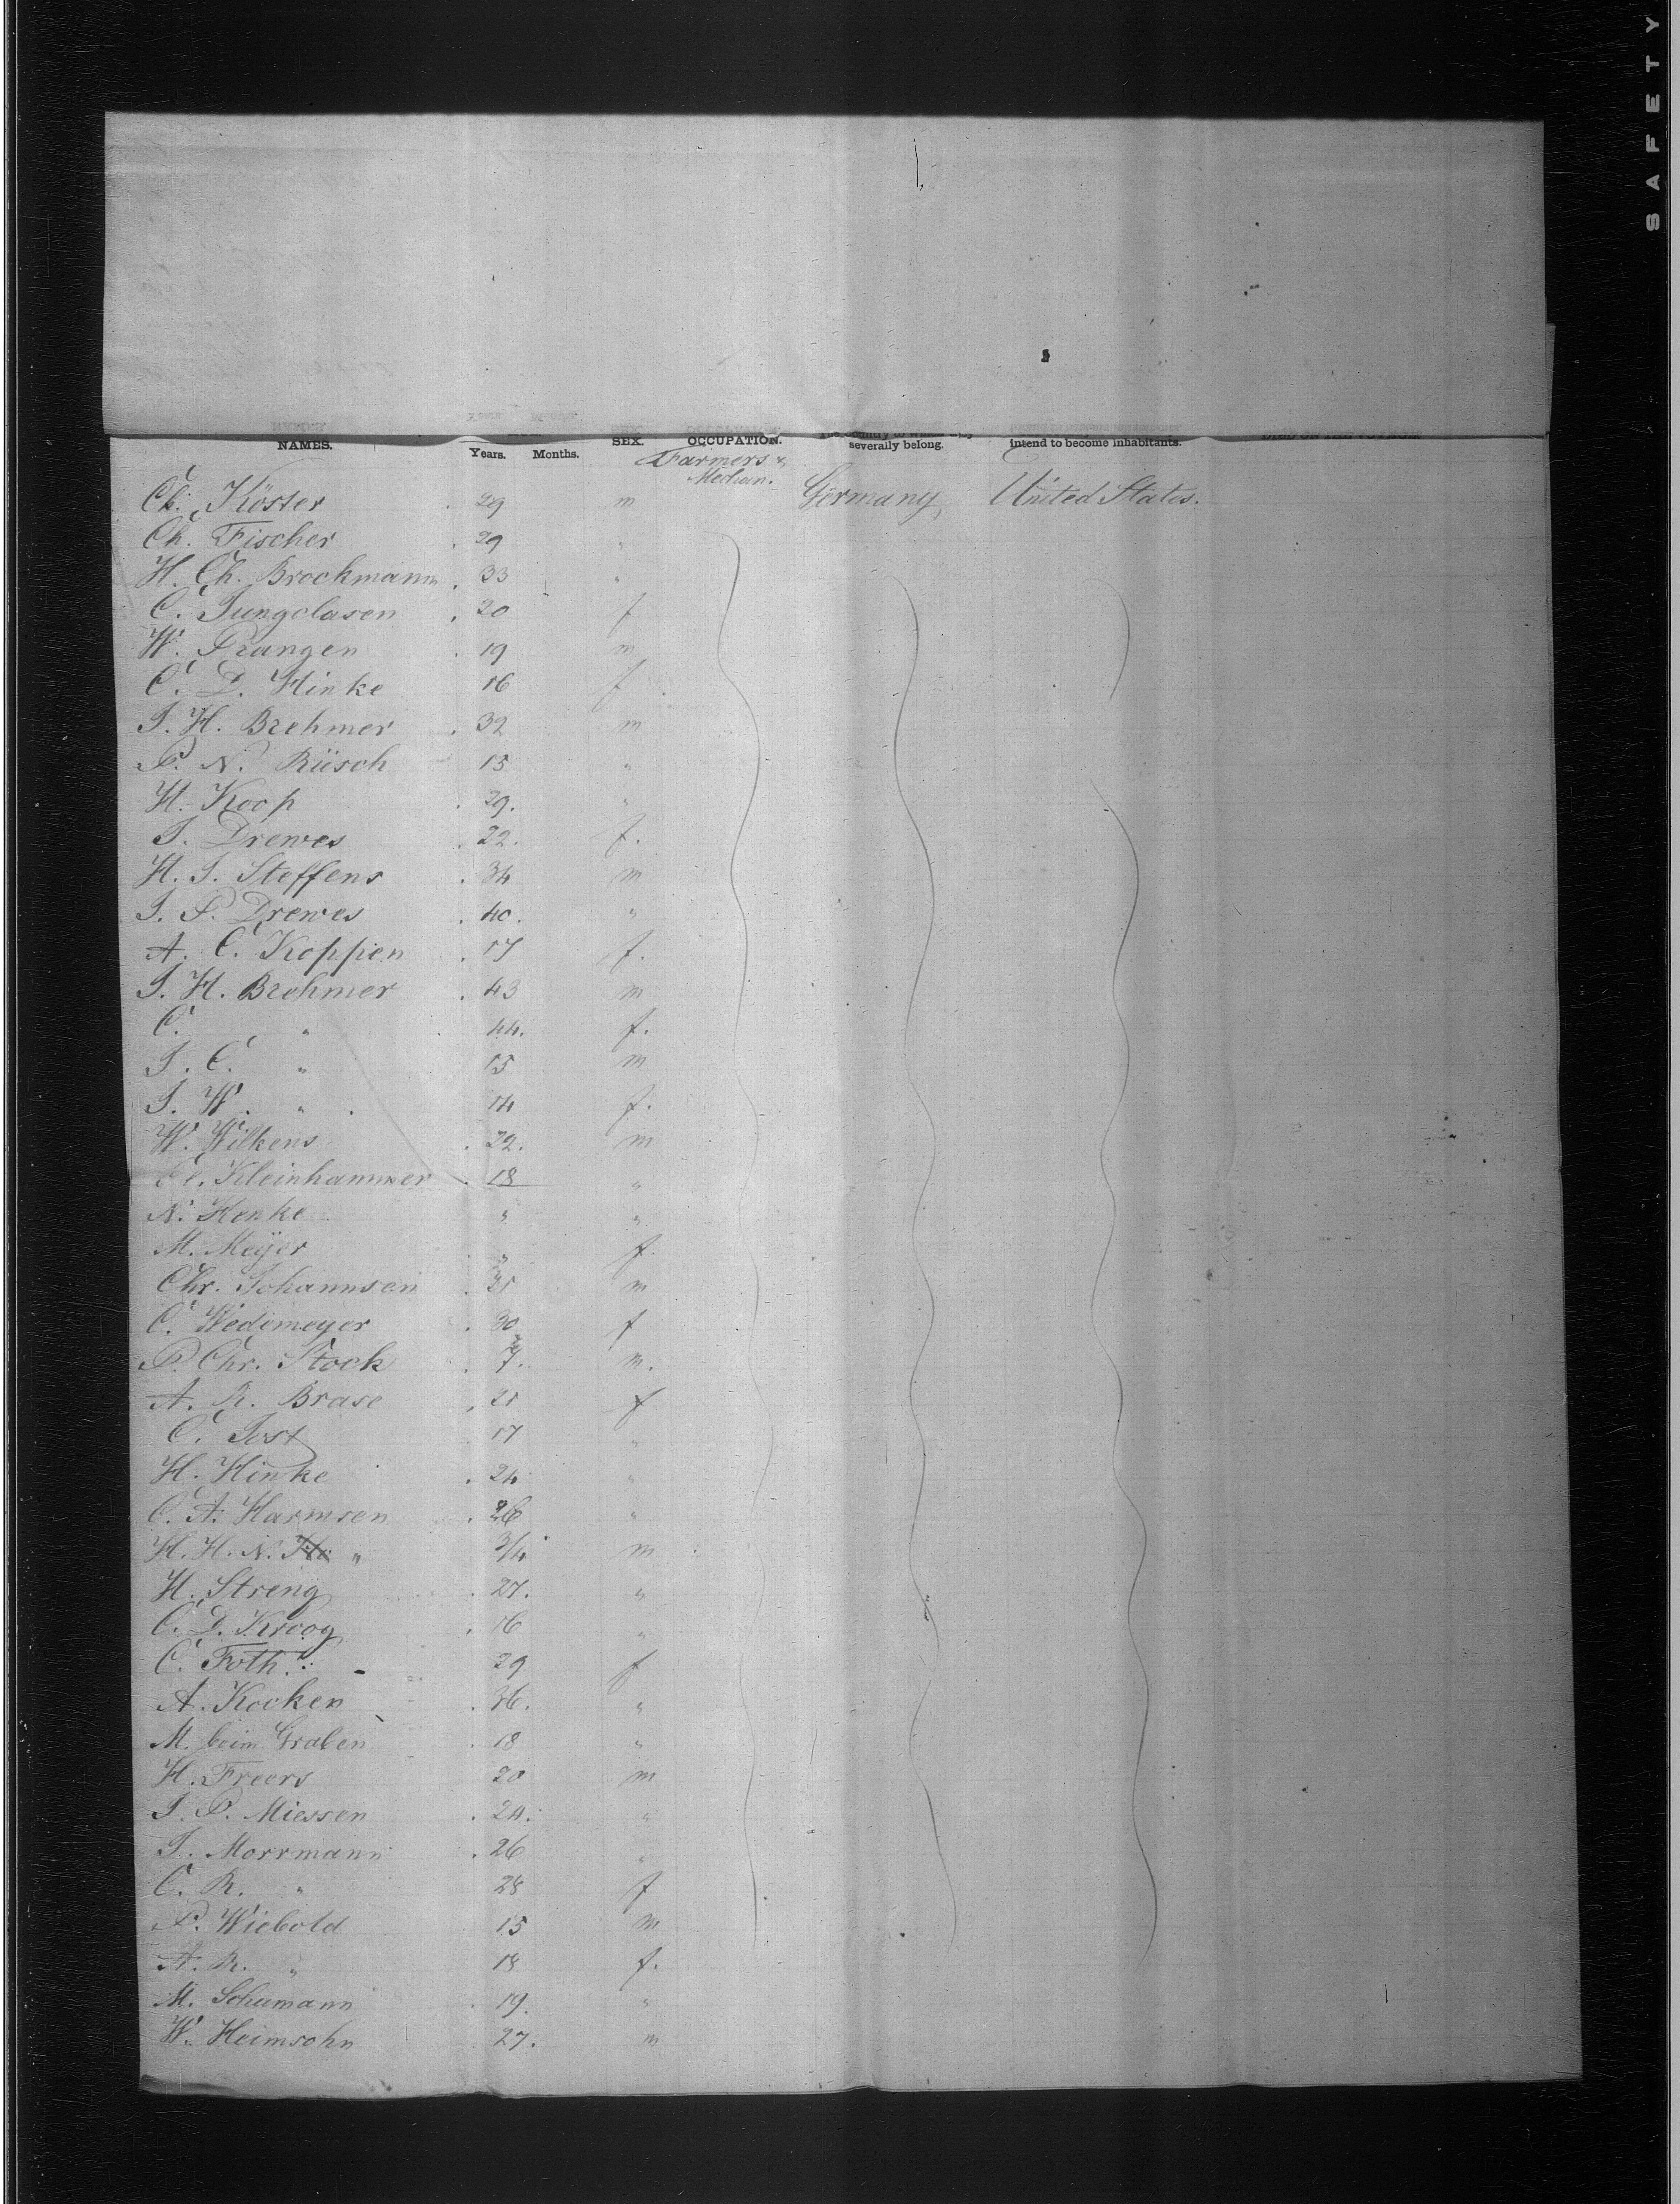 SAFETY
NAMES. Years. Months. SEX. OCCUPATION. severally belong. intend to become inhabitants.
Farmers &
Mechan.
Ch. Köster 29 m Germany United States.
Ch. Fischer 29 "
H. Ch. Brockmann 33 "
C. Jungclasen 20 f
W. Prangen 19 m
C. D. Hinke 16 f
J. H. Brehmer 32 m
P. N. Rüsch 15 "
H. Koop 29. "
J. Drewes 22. f.
H. J. Steffens 34 m
J. P. Drewes 40. "
A. C. Koppen 17 f.
J. H. Brehmer 43 m
C. " 44. f.
J. C. " 15 m
J. W. " 14 f.
W. Wilkens 22. m
Kleinhammer 18 "
N. Henke " "
M. Meÿer " f
Chr. Johannsen 21 m
C. Wedemeyer 30 f
P. Chr. Stock 7. m.
A. R. Brase 21 f
C. Jost 17 "
H. Hinke 24 "
C. A. Harmsen 26 "
H. H. N. " 3/4 m
H. Streng 27. "
C. D. Kroog 16 "
C. Foth 29 f
A. Kocken 36. "
M. beim Graben 18 "
H. Freers 20 m
J. P. Miessen 24. "
J. Morrmann 26 "
C. R. " 28 f
P. Wiebold 15 m
A. R. " 18 f.
M. Schumann 19. "
W. Heimsohn 27. m